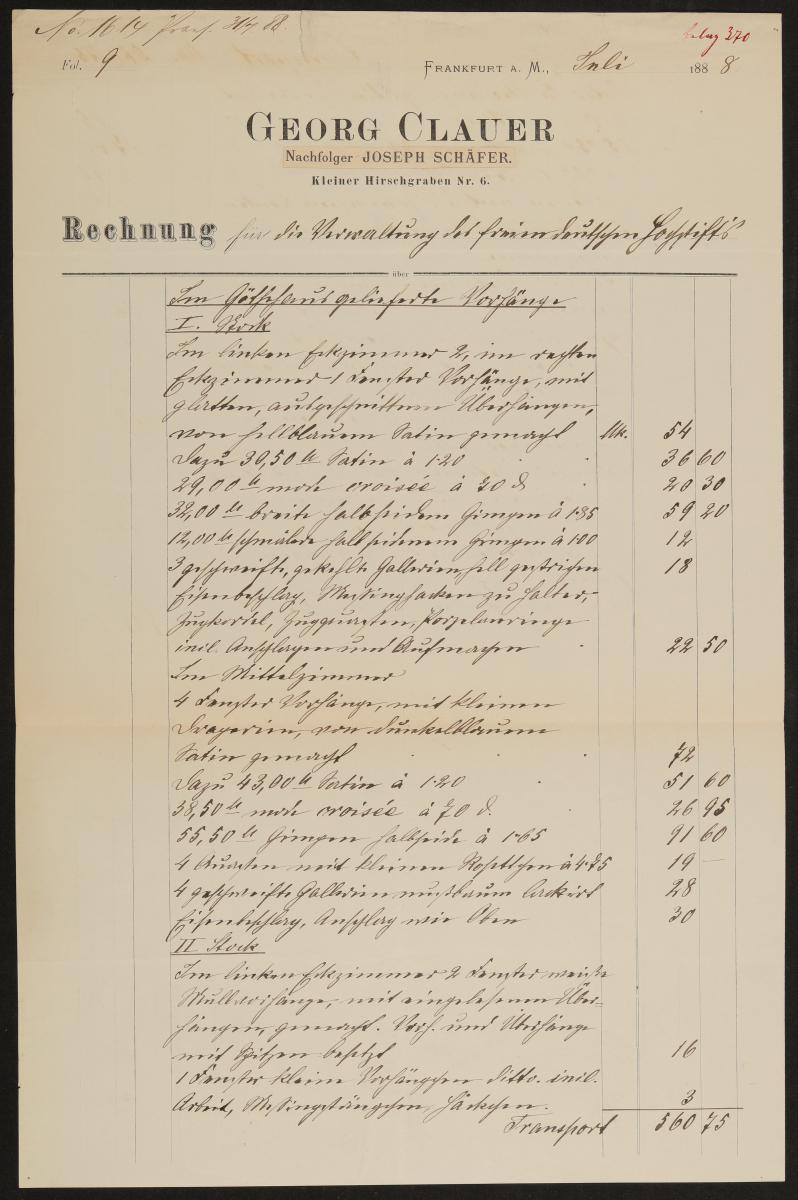 No. 1614 31/7 88.
Beleg 370
Fol. 9 FRANKFURT A. M., Juli 1888
GEORG CLAUER
Nachfolger JOSEPH SCHÄFER.
Kleiner Hirschgraben Nr. 6.
Rechnung für die Verwaltung des freien deutschen Hochstift's
über
Im Göthehaus gelieferte Vorhänge
I. Stock
Im linken Eckzimmer 2, im rechten
Eckzimmer 1 Fenster Vorhänge, mit
glatten, ausgeschnittenen Überhängen,
von hellblauem Satin gemacht Mk. 54
Dazu 30,50 Satin à 1.20 36 60
29,00 mode croisée à 70 d 20 30
32,00 breite halbseidene Gimpen à 1.85 59 20
12,00 schmälere halbseidenen Gimpen à 1.00 12
3 geschweifte, gekehlte Gallerien hell gestrichen 18
Eisenbeschlag, Messinghacken zu Halter,
Zugkordel, Zugquasten, Porzelanringe
incl. Anschlagen und Aufmachen 22 50
Im Mittelzimmer
4 Fenster Vorhänge, mit kleinen
Draperien, von dunkelblauem
Satin gemacht 72
Dazu 43,00 Satin à 1.20 51 60
38,50 mode croisée à 70 d. 26 95
55,50 Gimpen halbseide à 1.65 91 60
4 Quasten mit kleinen Rosettchen à 4.75 19 —
4 geschweifte Gallerien nußbaum lackirt 28
Eisenbeschlag, Anschlag wie Oben 30
II Stock
Im linken Eckzimmer 2 Fenster weiße
Mullvorhänge, mit eingelesenen Über-
hängen, gemacht. Vorh. und Überhänge
mit Spitzen besetzt 16
1 Fenster kleine Vorhängchen ditto. incl.
Arbeit, Messingstängchen, Häckchen. 3
Transport 560 75